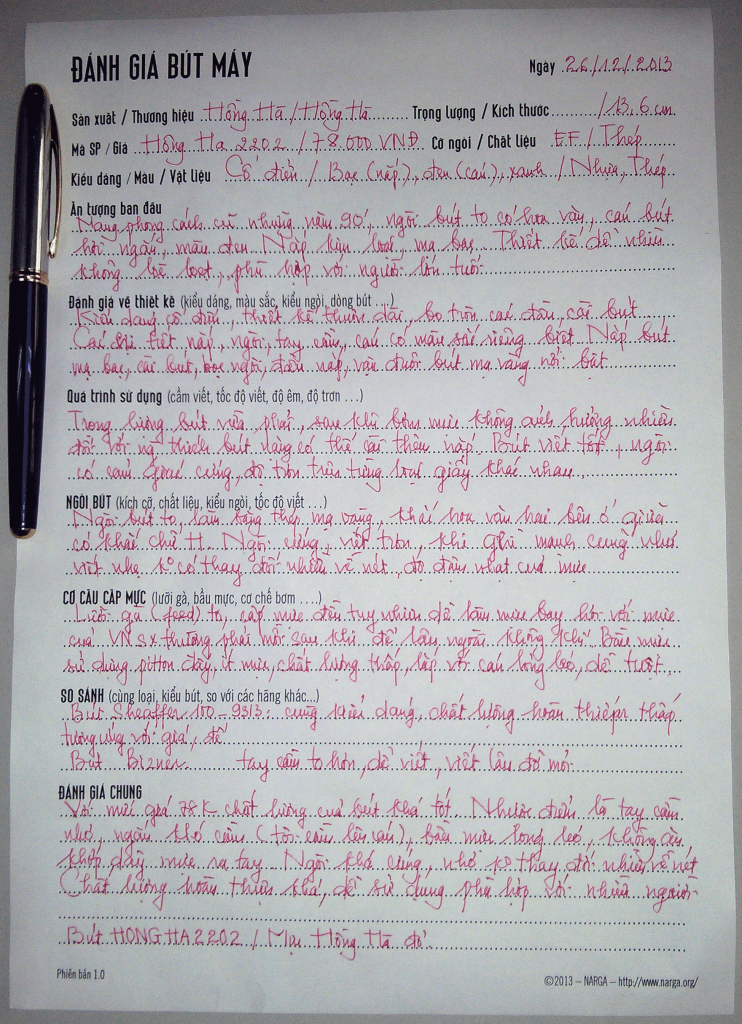 ĐÁNH GIÁ BÚT MÁY
Ngày 26/12/2013
Sản xuất / Thương hiệu Hồng Hà / Hồng Hà Trọng lượng / Kích thước /13,6 cm
Mã SP / Giá Hồng Ha 2202 / 78.000 VNĐ Cỡ ngòi / Chất liệu EF / Thép
Kiểu dáng / Màu / Vật liệu Cổ điển / Bạc (nắp), đen (cán), xanh / Nhựa, Thép
Ấn tượng ban đầu
Mang phong cách cũ những năm 90', ngòi bút to có hoa văn, cán bút
hơi ngắn, màu đen. Nắp kim loại, mạ bạc. Thiết kế dễ nhìn
không lòe loẹt, phù hợp với người lớn tuổi
Đánh giá về thiết kế (kiểu dáng, màu sắc, kiểu ngòi, dòng bút ...)
Kiểu dáng cổ điển, thiết kế thuôn dài, bo tròn các đầu, cài bút
Các chi tiết nắp, ngòi, tay cầm, cán có màu sắc riêng biệt. Nắp bút
mạ bạc, cài bút, bọc ngòi, đầu nắp, vặn đuôi bút mạ vàng nổi bật
Quá trình sử dụng (cầm viết, tốc độ viết, độ êm, độ trơn ...)
Trọng lượng bút vừa phải, sau khi bơm mực không ảnh hưởng nhiều
đối với ng thích bút nặng có thể cài thêm nắp. Bút viết tốt, ngòi
có cảm giác cứng, độ trơn trên từng loại giấy khác nhau.
NGÒI BÚT (kích cỡ, chất liệu, kiểu ngòi, tốc độ viết ...)
Ngòi bút to, làm bằng thép mạ vàng, khắc hoa văn hai bên ở giữa
có khắc chữ H. Ngòi cứng, viết trơn, khi ghì mạnh cũng như
viết nhẹ ko có thay đổi nhiều về nét, độ đậm nhạt của mực
CƠ CẤU CẤP MỰC (lưỡi gà, bầu mực, cơ chế bơm ....)
Lưỡi gà (feed) to, cấp mực đều tuy nhiên dễ làm mực bay hơi với mực
của VN sx thường phải mồi sau khi để lâu ngoài không khí. Bầu mực
sử dụng pitton đẩy, ít mực, chất lượng thấp, lắp với cán lỏng lẻo, dễ tuột.
SO SÁNH (cùng loại, kiểu bút, so với các hãng khác...)
Bút Sheaffer 100-9313: cùng kiểu dáng, chất lượng hoàn thiện thấp
tương ứng với giá, dễ
Bút Bizner tay cầm to hơn, dễ viết, viết lâu đỡ mỏi
ĐÁNH GIÁ CHUNG
Với mức giá 78K chất lượng của bút khá tốt. Nhược điểm là tay cầm
nhỏ, ngắn khó cầm (tôi cầm lên cán), bầu mực lỏng lẻo, không ăn
khớp dây mực ra tay. Ngòi khá cứng, nhỏ ko thay đổi nhiều về nét
Chất lượng hoàn thiện khá, dễ sử dụng phù hợp với nhiều người
Bút HONG HA 2202 / Mực Hồng Hà đỏ
Phiên bản 1.0
©2013 – NARGA – http://www.narga.org/